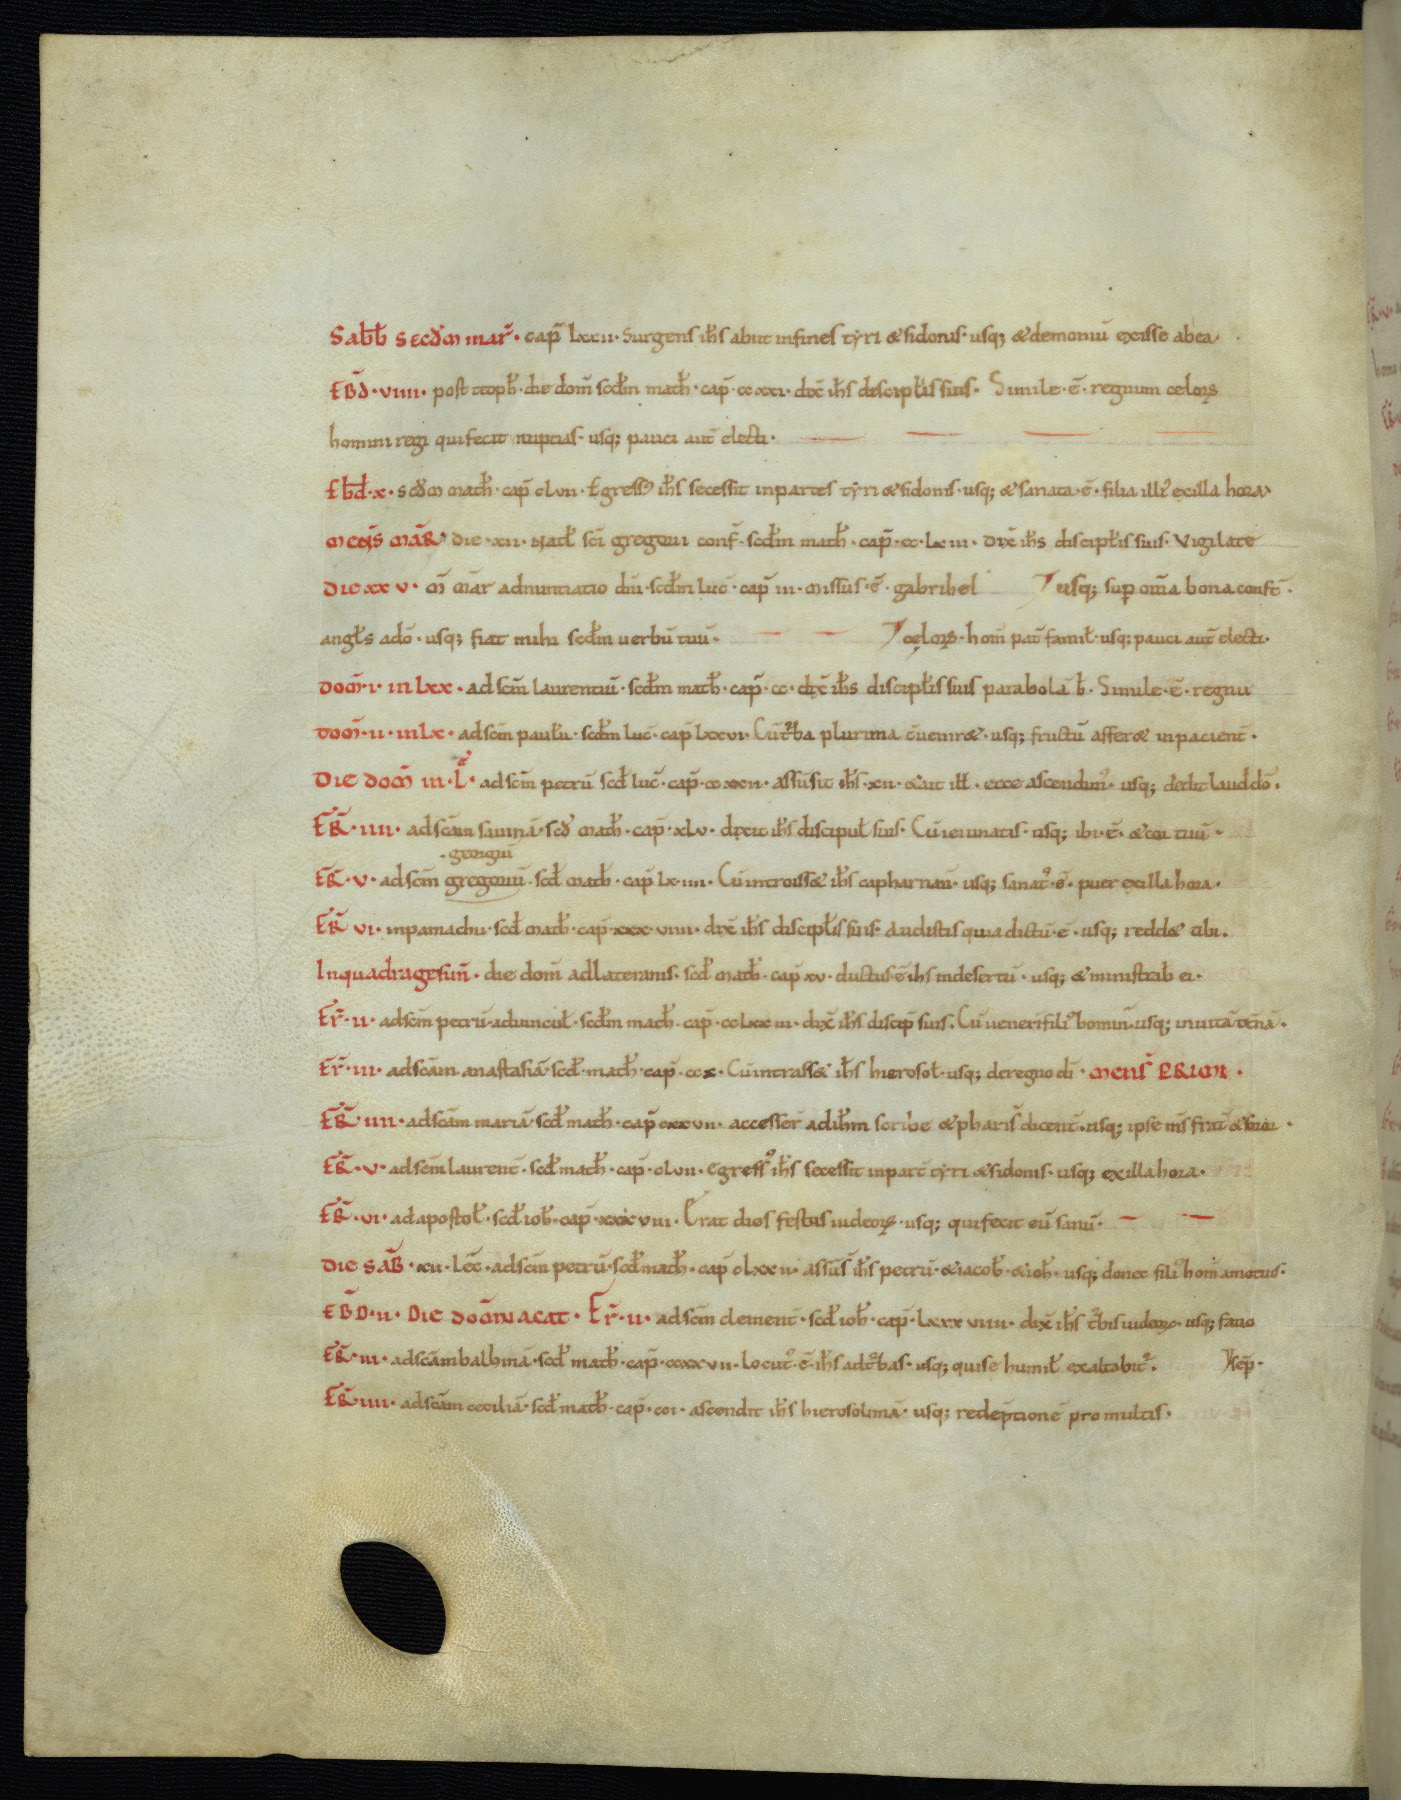 Sabb̄ secd̄m mar̄· cap̄ lxxii· Surgens ih̄s abiit infines tyri & sidonis· usq; & demoniū exisse abea·
EBD̄·viiii· post teoph̄· die dom̄ scd̄m math̄· cap̄· ccxxi· dix̄ ih̄s discipl̄is suis· Simile·ē· regnum celoꝝ
homini regi qui fecit nuptias· usq; pauci aut̄ electi·
Ebd̄·x· scd̄m math̄· cap̄ clvii· Egress᾿ ih̄s secessit inpartes tyri & sidonis· usq; & sanata·ē· filia illi᾿ exilla hora·
mens̄ mar̄· die·xii· Natl̄ sc̄i gregorii conf̄· scd̄m math̄· cap̄·cc·lxiii· dix̄ ih̄s discipl̄is suis· Vigilate
die xxv· m̄ mar̄ adnuntiatio dn̄i· scd̄m luc̄· cap̄ iii· missus·ē· gabrihel usq; sup̄ om̄a bona conf̄t·
angl̄s ad̄o· usq; fiat mihi scd̄m uerbū tuū· celoꝝ· hom̄ pat̄ famil̄· usq; pauci aut̄ electi·
dom̄·i· in lxx· ad sc̄m laurentiū· scd̄m math̄· cap̄·cc· dix̄ ih̄s discipl̄is suis parabolā h̄· Simile·ē· regnū
dom̄·ii· in lx· ad sc̄m paulū· scd̄m luc̄· cap̄ lxxvi· Cū t̄ba plurima c̄uenir&· usq; fructū affer& inpacient̄·
Die dom̄ in·l᾿ᵃ· ad sc̄m petrū scd̄ luc̄· cap̄·ccxxii· assūsit ih̄s·xii· & ait ill̄· ecce ascendim᾿· usq; dedit laud̄ dō·
FR̄·iiii· ad sc̄am sauinā· scd̄ math̄· cap̄·xlv· dixit ih̄s discipul̄ suis· Cū ieiunatis· usq; ibi·ē· & cor tuū·
georgiū
FR̄·v· ad sc̄m gregoriū· scd̄ math̄· cap̄ lxiiii· Cū introiss& ih̄s capharnaū· usq; sanat᾿·ē· puer exilla hora·
FR̄ vi· inpamachii· scd̄ math̄· cap̄·xxxviiii· dix̄ ih̄s discipl̄is suis· Audistis quia dictū·ē· usq; redd& tibi·
Inquadragesim̄· die dom̄ adlateranis· scd̄ math̄· cap̄ xv· ductus·ē ih̄s indesertū· usq; & ministrab̄ ei·
Fr̄·ii· ad sc̄m petrū·aduincul̄· scd̄m math̄· cap̄·cclxxiii· dix̄ ih̄s discip̄ suis· Cū uenerit fili᾿ homin̄· usq; inuitā et̄nā·
Fr̄·iii· ad sc̄am anastasiā· scd̄· math̄· cap̄·ccx· Cū intrass& ih̄s hierosol̄· usq; deregno dī· mens̄ PRIMI·
FR̄·iiii· ad sc̄am mariā· scd̄ math̄· cap̄ cxxvii· accesser̄ adih̄m scribe & pharis̄ dicent̄· usq; ipse m̄s frat̄ & soror·
FR̄·v· ad sc̄m laurent̄· scd̄ math̄· cap̄·clvii· egress᾿ ih̄s secessit inpart̄ tyri & sidonis· usq; exilla hora·
FR̄·vi· ad apostol̄· scd̄ ioh̄· cap̄·xxxviii· Erat dies festus iudeoꝝ· usq; qui fecit eū sanū·
die sab̄·xii·lec̄· ad sc̄m petrū· scd̄ math̄· cap̄ clxxii· assūs̄ ih̄s petrū· & iacob̄· & ioh̄· usq; donec fili᾿ hom̄ amortuis·
EBD̄·ii· Die dom̄ uacat· Fr̄·ii· ad sc̄m clement̄· scd̄ ioh̄· cap̄·lxxxviiii· dix̄ ih̄s t̄bis iudeoꝝ· usq; facio
FR̄·iii· ad sc̄am balbinā· scd̄ math̄· cap̄·ccxxvii· locut᾿·ē· ih̄s adt̄bas· usq; qui se humil̄ exaltabit᾿· sep̄·
FR̄·iiii· ad sc̄am ceciliā· scd̄ math̄· cap̄·cci· ascendit ih̄s hierosolimā· usq; redēptionē pro multis·